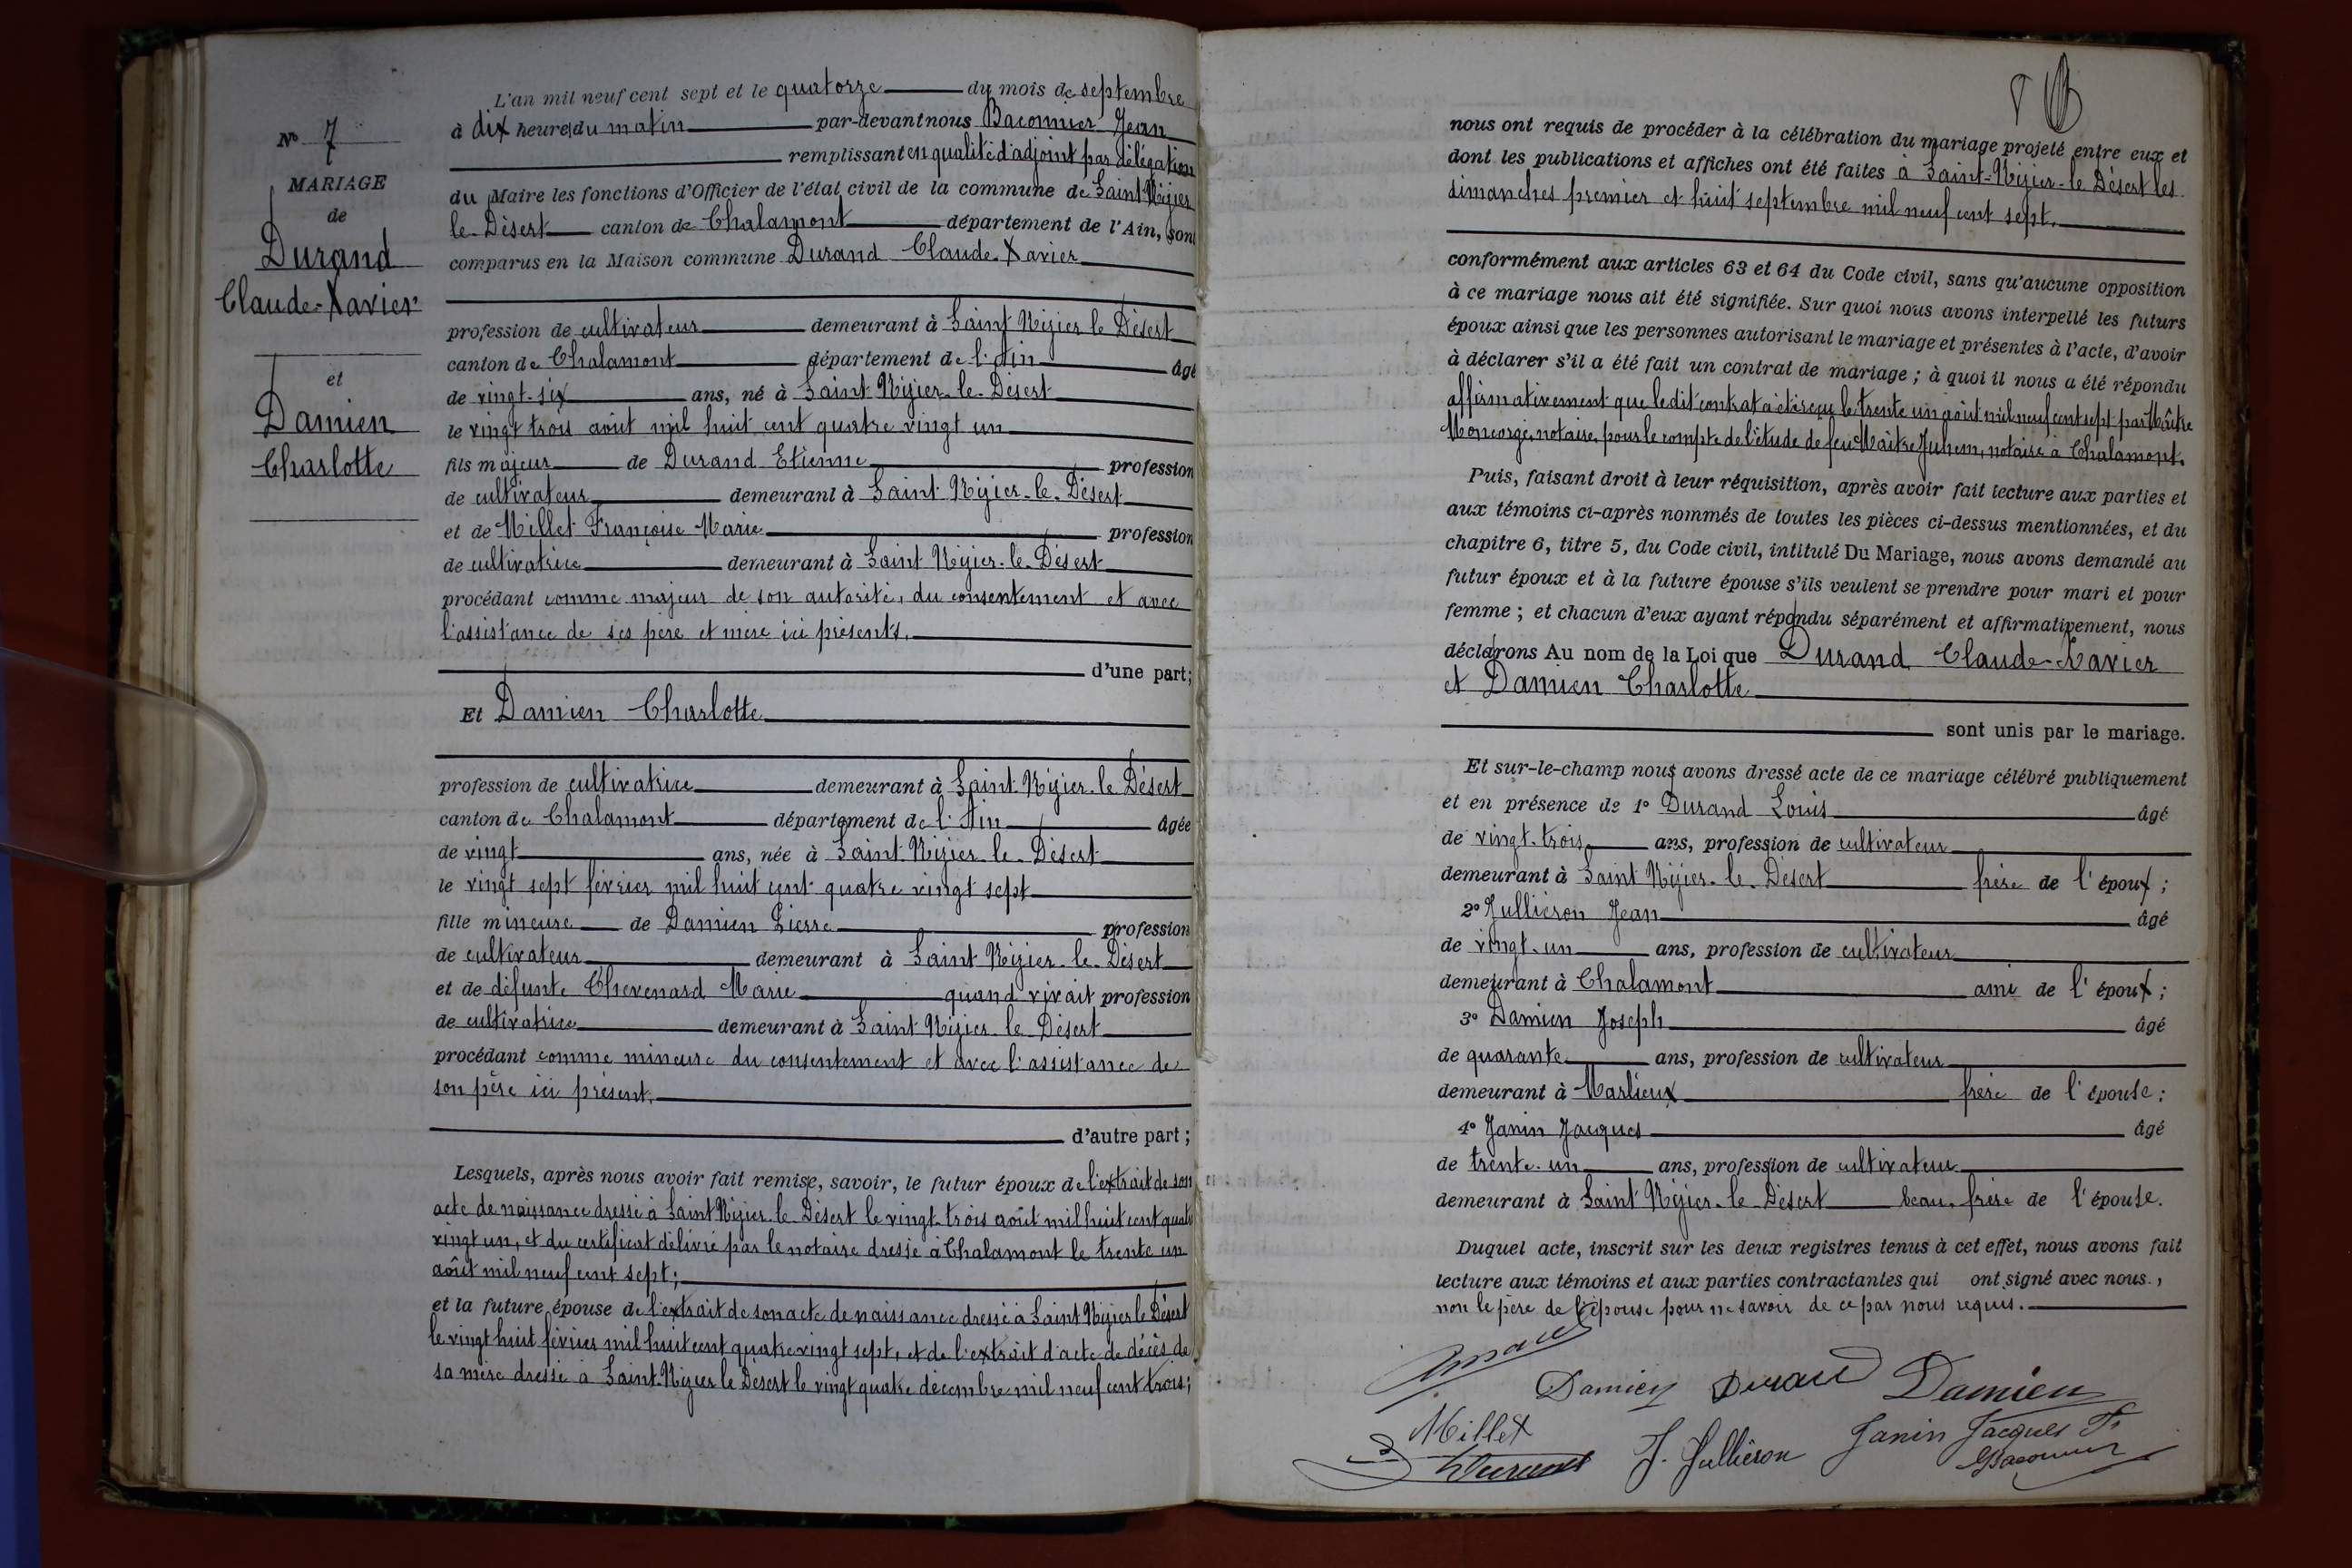 N° 7
MARIAGE
de
Durand
Claude-Xavier
et
Damien
Charlotte
L'an mil neuf cent sept et le quatorze du mois de septembre
à dix heures du matin par-devant nous Baconnier Jean
remplissant en qualité d'adjoint par délégation
du Maire les fonctions d'Officier de l'état civil de la commune de Saint Nizier
le-Désert canton de Chalamont département de l'Ain, sont
comparus en la Maison commune Durand Claude-Xavier
profession de cultivateur demeurant à Saint Nizier le Désert
canton de Chalamont département de l'Ain âgé
de vingt-six ans, né à Saint Nizier-le-Désert
le vingt trois août mil huit cent quatre vingt un
fils majeur de Durand Etienne profession
de cultivateur demeurant à Saint Nizier-le-Désert
et de Millet Françoise Marie profession
de cultivatrice demeurant à Saint Nizier-le-Désert
procédant comme majeur de son autorité, du consentement et avec
l'assistance de ses père et mère ici présents.
d'une part;
Et Damien Charlotte
profession de cultivatrice demeurant à Saint-Nizier-le Désert
canton de Chalamont département de l'Ain âgée
de vingt ans, née à Saint-Nizier-le-Désert
le vingt sept février mil huit cent quatre vingt sept
fille mineure de Damien Pierre profession
de cultivateur demeurant à Saint Nizier-le-Désert
et de défunte Chevenard Marie quand vivait profession
de cultivatrice demeurant à Saint Nizier le Désert
procédant comme mineure du consentement et avec l'assistance de
son père ici présent.
d'autre part;
Lesquels, après nous avoir fait remise, savoir, le futur époux de l'extrait de son
acte de naissance dressé à Saint Nizier-le-Désert le vingt-trois août mil huit cent quatre
vingt un, et du certificat délivré par le notaire dressé à Chalamont le trente un
août mil neuf cent sept;
et la future épouse de l'extrait de son acte de naissance dressé à Saint Nizier le Désert
le vingt huit février mil huit cent quatre vingt sept, et de l'extrait d'acte de décès de
sa mère dressé à Saint-Nizier le Désert le vingt quatre décembre mil neuf cent trois;
nous ont requis de procéder à la célébration du mariage projeté entre eux et
dont les publications et affiches ont été faites à Saint-Nizier-le Désert les
dimanches premier et huit septembre mil neuf cent sept.
conformément aux articles 63 et 64 du Code civil, sans qu'aucune opposition
à ce mariage nous ait été signifiée. Sur quoi nous avons interpellé les futurs
époux ainsi que les personnes autorisant le mariage et présentes à l'acte, d'avoir
à déclarer s'il a été fait un contrat de mariage; à quoi il nous a été répondu
affirmativement que ledit contrat a été reçu le trente un août mil neuf cent sept par Maître
Moncorgé, notaire, pour le compte de l'étude de feu Maître Juhem, notaire à Chalamont.
Puis, faisant droit à leur réquisition, après avoir fait lecture aux parties et
aux témoins ci-après nommés de toutes les pièces ci-dessus mentionnées, et du
chapitre 6, titre 5, du Code civil, intitulé Du Mariage, nous avons demandé au
futur époux et à la future épouse s'ils veulent se prendre pour mari et pour
femme; et chacun d'eux ayant répondu séparément et affirmativement, nous
déclarons Au nom de la Loi que Durand Claude-Xavier
et Damien Charlotte
sont unis par le mariage.
Et sur-le-champ nous avons dressé acte de ce mariage célébré publiquement
et en présence de 1° Durand Louis âgé
de vingt-trois ans, profession de cultivateur
demeurant à Saint Nizier-le-Désert frère de l'époux;
2° Jullieron Jean âgé
de vingt-un ans, profession de cultivateur
demeurant à Chalamont ami de l'époux;
3° Damien Joseph âgé
de quarante ans, profession de cultivateur
demeurant à Marlieux frère de l'épouse;
4° Janin Jacques âgé
de trente-un ans, profession de cultivateur
demeurant à Saint Nizier-le-Désert beau-frère de l'épouse.
Duquel acte, inscrit sur les deux registres tenus à cet effet, nous avons fait
lecture aux témoins et aux parties contractantes qui ont signé avec nous,
non le père de l'épouse pour ne savoir de ce par nous requis.
Damien Durand Damien
Millet
Durand J. Jullieron Janin Jacques
Baconnier